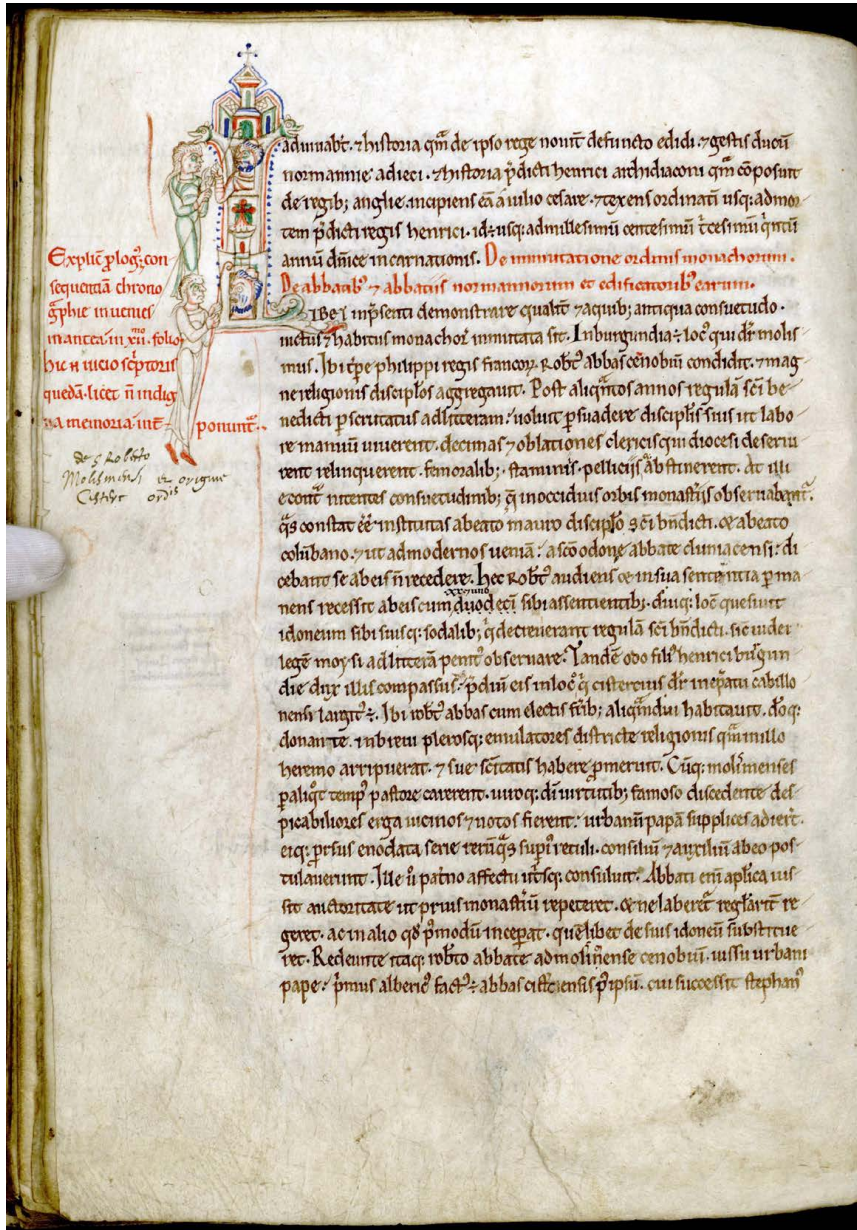 adiuuabt̄. ⁊ historia qm̄ de ipso rege nouit̄ defuncto edidi. ⁊ gestis ducū
normannie adieci. ⁊ historiā p̄dicti henrici archidiaconi qm̄ cōposuit
de regib; anglie. incipiens eā a iulio cesare. ⁊ texens ordinatī usq; ad mor
tem p̄dicti regis henrici. id÷ usq; ad millesimū centesimū t̄cesimū q̄ntū
annū dn̄ice incarnationis. De immutatione ordinis monachorum.
De abbatib⁹ ⁊ abbatiis normannorum et edificatorib⁹ earum.
Libet in p̄senti demonstrare qualit̄ ⁊ a quib; antiqua consuetudo.
uictus ⁊ habitus monachoꝝ inmutata sit. In burgundia ÷ loc⁹ qui dr̄ molis
mus. Ibi tp̄e philippi regis francoꝝ. Rob̄t⁹ abbas cenobiū condidit. ⁊ mag
ne religionis discip̄los aggregauit. Post aliq̄ntos annos regulā sc̄i be
nedicti p̄scrutatus ad litteram. uoluit p̄suadere discip̄lis suis ut labo
re manuū uiuerent. decimas ⁊ oblationes clericis qui diocesi deserui
rent relinquerent. femoralib;. staminiis. pelliciis abstinerent. At illi
econt̄ nitentes consuetudinib; q̄ in occiduis orbis monast̄iis obseruabant̄.
q̄s constat ee̅ institutas a beato mauro discip̄lo sc̄i bn̄dicti. ⁊ a beato
colūbano. ⁊ ut ad modernos ueniā. a sc̄o odone abbate cluniacensi. di
cebant se ab eis n̄ recedere. Hec Rob̄t⁹ audiens ⁊ in sua sententia p̄ma
nens recessit ab eis cum duodecī sibi assentientib;. diuq; locū quesiuit
xx ⁊ uno
idoneum sibi suisq; sodalib;. q̄ decreuerant regulā sc̄i bn̄dicti. sic iudei
legē moysi ad litterā penit⁹ obseruare. Tandē odo fili⁹ henrici burgun
die dux illis compassus. p̄diū eis in loc̄o q̄ cistercius dr̄ in ep̄atu cabillo
nensi largit⁹ ÷. Ibi rob̄t⁹ abbas cum electis fr̄ib; aliq̄mdiu habitauit. do̅q;
donante. in breui plerosq; emulatores districte religionis qm̄ in illo
heremo arripuerat. ⁊ sue sc̄itatis habere p̄meruit. Cūq; molismenses
p̄ aliq̄t temp⁹ pastore carerent. uiroq; di̅ uirtutib; famoso discedente des
picabiliores erga uicinos ⁊ notos fierent. urbanū papā supplices adiert̄.
eiq; p̄rsus enodata serie rerū q̄s sup̄i⁹ retuli. consiliū ⁊ auxiliū ab eo pos
tulauerunt. Ille u̅ pat̄no affectu ut̄sq; consuluit. Abbati em̄ ap̄lica ius
sit auctoritate ut prius monast̄iū repeteret. ⁊ ne laberet̄ reglarit̄ re
geret. ac in alio qd̄ p̄modū inceperat. quēlibet de suis idoneū substitue
ret. Redeunte itaq; rob̄to abbate ad molim̄ense cenobiū. iussu urbani
pape. p̄mus alberic⁹ fact⁹ ÷ abbas cist̄ciensis p⁹ ipsū. cui successit stephan⁹
Explic̄ p̄log⁹. con
sequentiā chrono
gphie inuenies
in antea. in xiii.mo folio
hic ū uicio sc̄ptoris
quedā. licet n̄ indig
na memoria. int̄
ponunt̄.
de S Roberto
Molismensi et origine
Cisterc ordis